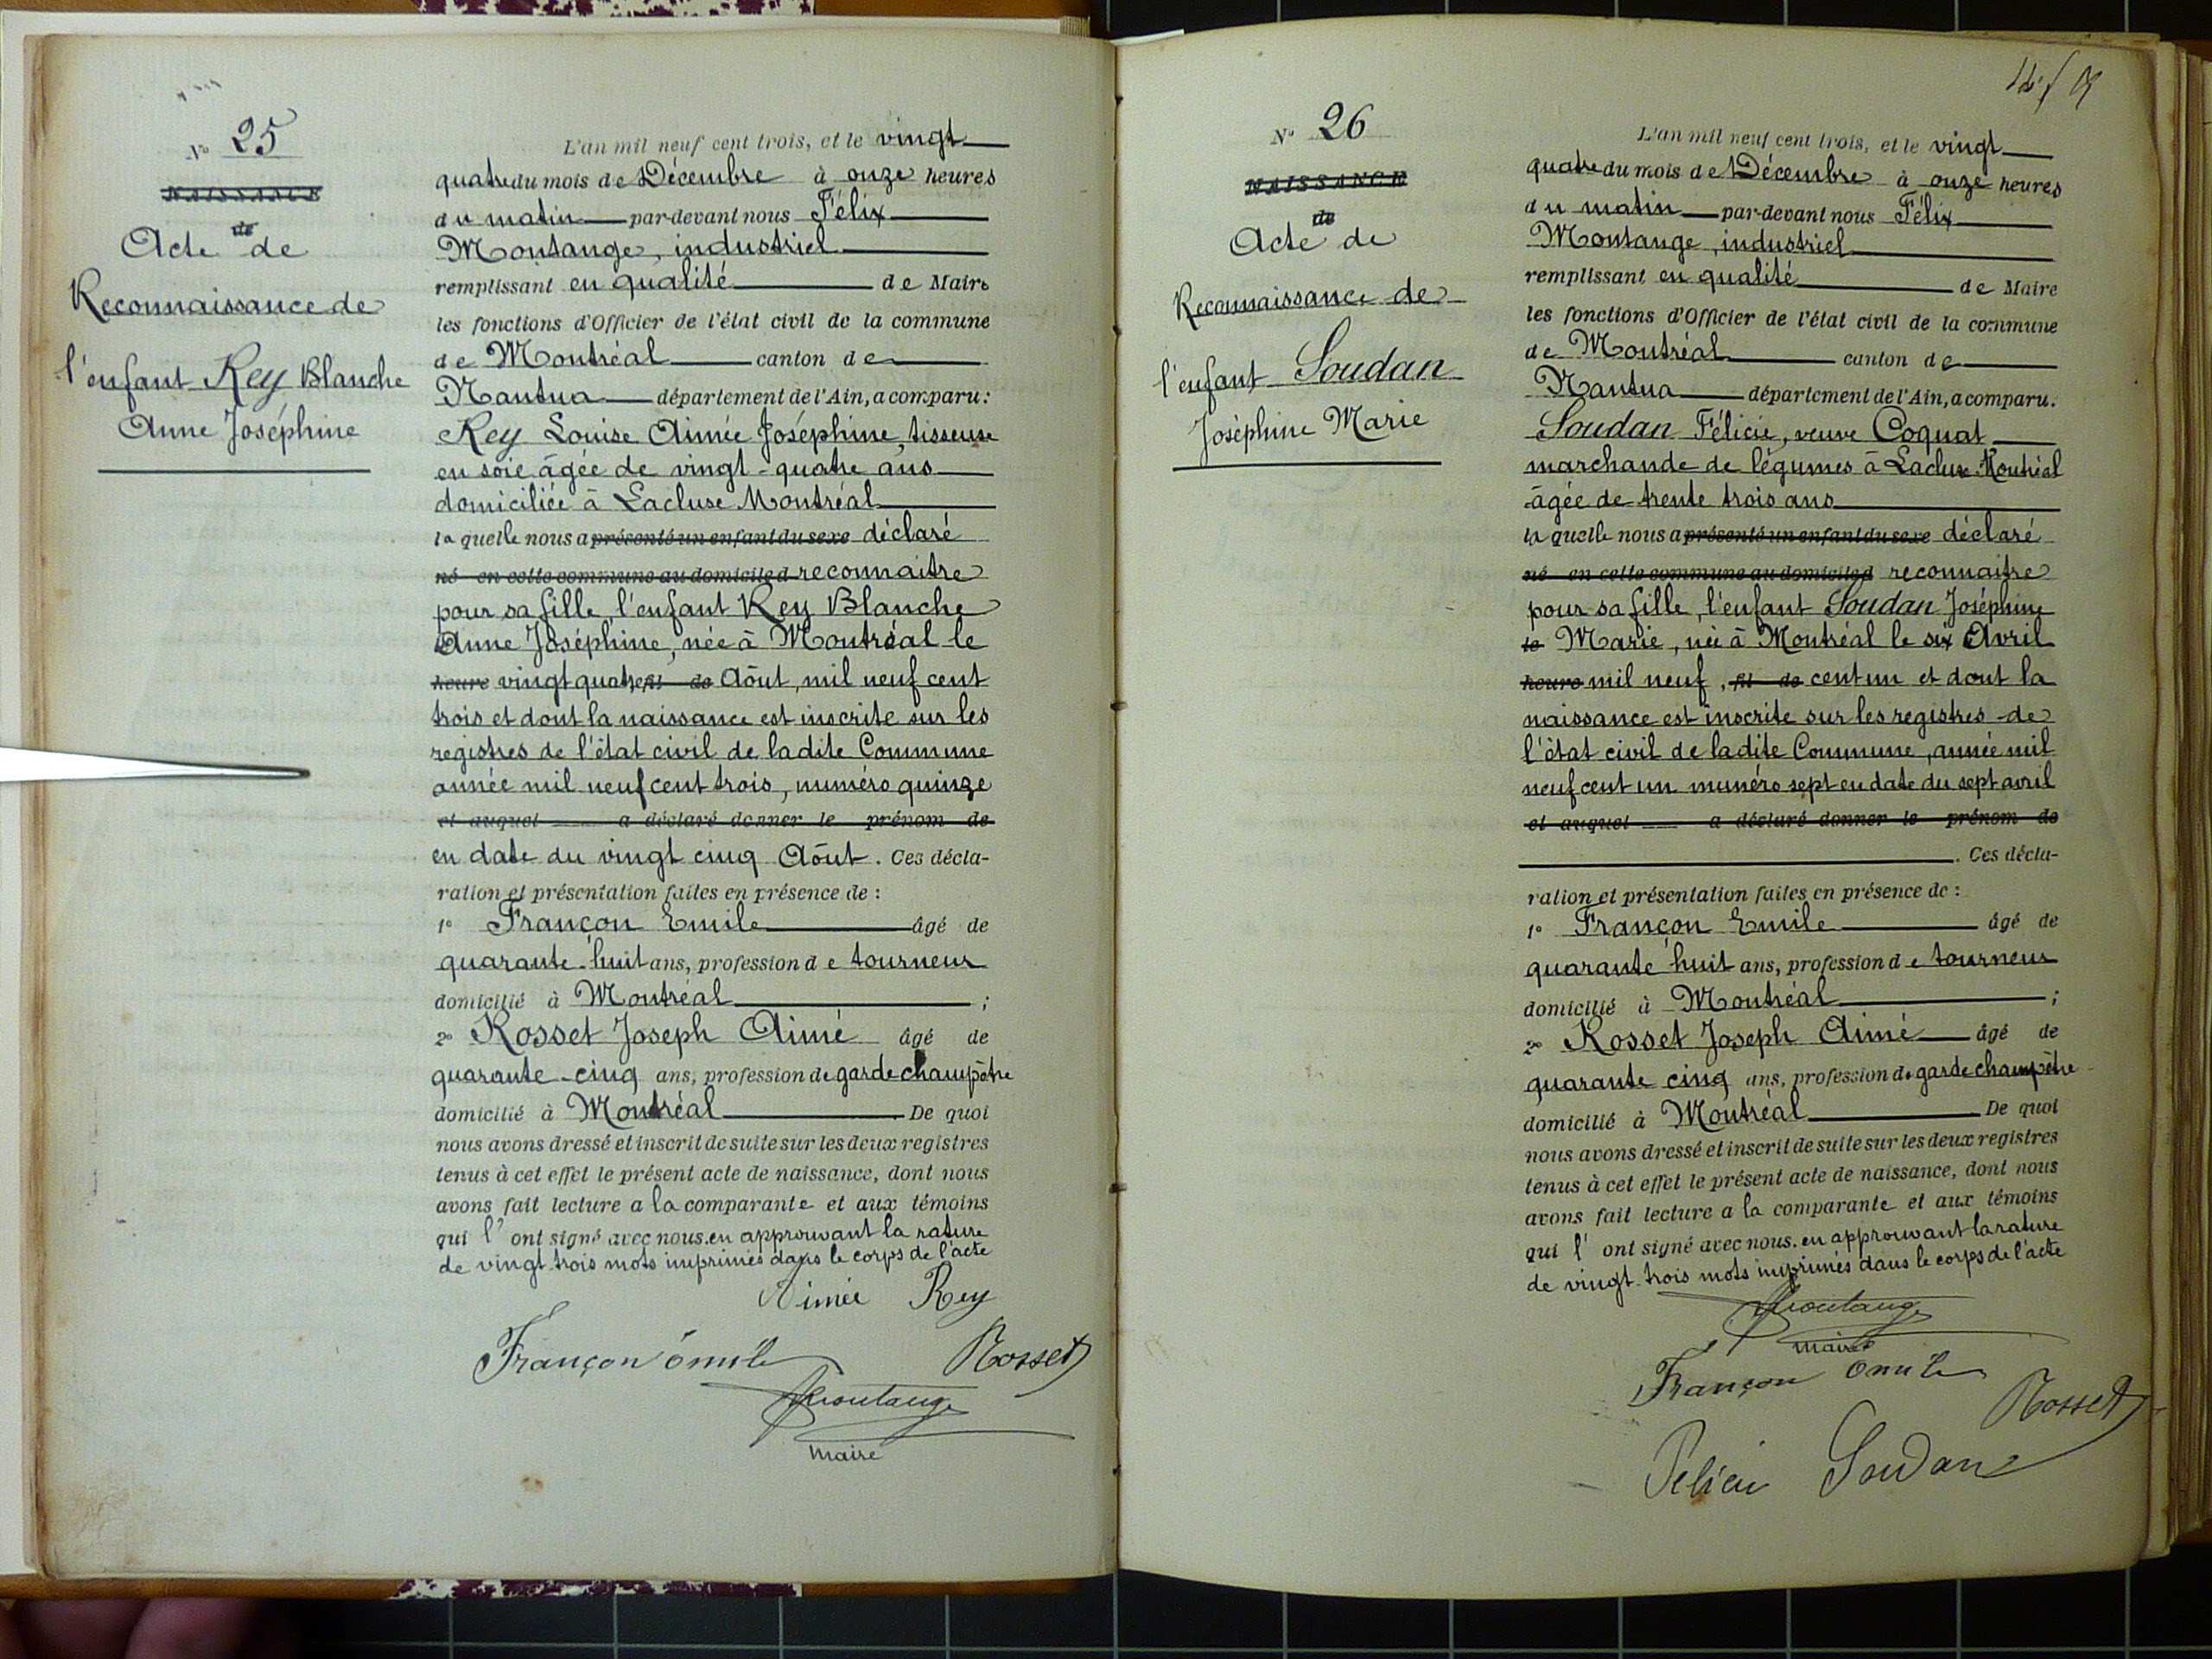 N° 25
NAISSANCE
de
Acte de
Reconnaissance de
l'enfant Rey Blanche
Anne Joséphine
L'an mil neuf cent trois, et le vingt
quatre du mois de Décembre à onze heures
du matin par-devant nous Félix
Montange, industriel
remplissant en qualité de Maire
les fonctions d'Officier de l'état civil de la commune
de Montréal canton de
Nantua département de l'Ain, a comparu:
Rey Louise Aimée Joséphine, tisseuse
en soie âgée de vingt-quatre ans
domiciliée à Lacluse Montréal
laquelle nous a présenté un enfant du sexe déclaré
né en cette commune au domicile d reconnaitre
pour sa fille, l'enfant Rey Blanche
Anne Joséphine, née à Montréal le
heure vingt quatre fil de Août, mil neuf cent
trois et dont la naissance est inscrite sur les
registres de l'état civil de ladite Commune
année mil neuf cent trois, numéro quinze
et auquel a déclaré donner le prénom de
en date du vingt cinq Août. Ces décla-
ration et présentation faites en présence de :
1° Françon Emile âgé de
quarante-huit ans, profession de tourneur
domicilié à Montréal ;
2° Rosset Joseph Aimé âgé de
quarante-cinq ans, profession de garde champêtre
domicilié à Montréal De quoi
nous avons dressé et inscrit de suite sur les deux registres
tenus à cet effet le présent acte de naissance, dont nous
avons fait lecture a la comparante et aux témoins
qui l'ont signé avec nous. en approuvant la rature
de vingt trois mots imprimés dans le corps de l'acte
Aimée Rey
Françon Emile Rosset
Montange
Maire
N° 26
NAISSANCE
de
Acte de
Reconnaissance de
l'enfant Soudan
Joséphine Marie
L'an mil neuf cent trois, et le vingt
quatre du mois de Décembre à onze heures
du matin par-devant nous Félix
Montange, industriel
remplissant en qualité de Maire
les fonctions d'Officier de l'état civil de la commune
de Montréal canton de
Nantua département de l'Ain, a comparu.
Soudan Félicie, veuve Coquat
marchande de légumes à Lacluse Montréal
âgée de trente trois ans
laquelle nous a présenté un enfant du sexe déclaré
né en cette commune au domicile d reconnaitre
pour sa fille, l'enfant Soudan Joséphine
le Marie, née à Montréal le six Avril
heure mil neuf, fil de cent un et dont la
naissance est inscrite sur les registres de
l'état civil de ladite Commune, année mil
neuf cent un numéro sept en date du sept avril
et auquel a déclaré donner le prénom de
. Ces décla-
ration et présentation faites en présence de :
1° Françon Emile âgé de
quarante huit ans, profession de tourneur
domicilié à Montréal ;
2° Rosset Joseph Aimé âgé de
quarante cinq ans, profession de garde champêtre
domicilié à Montréal De quoi
nous avons dressé et inscrit de suite sur les deux registres
tenus à cet effet le présent acte de naissance, dont nous
avons fait lecture a la comparante et aux témoins
qui l'ont signé avec nous. en approuvant la rature
de vingt-trois mots imprimés dans le corps de l'acte
Montange
Maire
Françon Emile
Rosset
Félicie Soudan